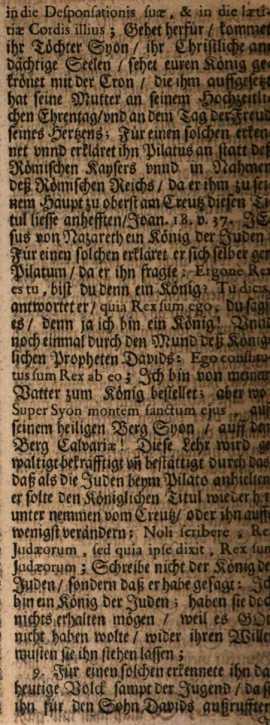 in die Desponsationis suæ, & in die læti-
tiæ Cordis illius; Gehet herfür / kommet
ihr Töchter Syon / ihr Christliche an-
dächtige Seelen / sehet euren König ge-
krönet mit der Cron / die ihm auffgesetzt
hat seine Mutter an seinem Hochzeitli-
chen Ehrentag/vnd an dem Tag der Freud
seines Hertzens; Für einen solchen erken-
net vnnd erkläret ihn Pilatus an statt deß
Römischen Kaysers vnnd in Nahmen
deß Römischen Reichs / da er ihm zu sei-
nem Haupt zu oberst am Creutz diesen Ti-
tul liesse anhefften/Joan. 18. v. 37. JE-
sus von Nazareth ein König der Juden
Für einen solchen erkläret er sich selber ge
Pilatum / da er ihn fragte: Ergone Rex
es tu, bist du denn ein König? Tu dicis
antwortet er/ quia Rex sum ego, du sagst
es / denn ja ich bin ein König! Vnnd
noch einmal durch den Mund deß König-
lichen Propheten Davids: Ego constitu-
tus sum Rex ab eo; Ich bin von meinem
Vatter zum König bestellet; aber wo
Super Syon montem sanctum ejus, auff
seinem heiligen Berg Syon / auff den
Berg Calvariæ! Diese Lehr wird ge-
waltigt bekräfftigt vn̄ bestättigt durch das
daß als die Juden beym Pilato anhielten
er solte den Königlichen Titul wieder h
unter nemmen vom Creutz/ oder ihn auffs
wenigst verändern; Noli scribere, Rex
Judæorum, sed quia ipse dixit, Rex sum
Judæorum; Schreibe nicht der König der
Juden/ sondern daß er habe gesagt: Ich
bin ein König der Juden; haben sie doch
nichts erhalten mögen / weil es GOtt
nicht haben wolte / wider ihren Willen
musten sie ihn stehen lassen;
9. Für einen solchen erkennete ihn da
heutige Volck sampt der Jugend / da
ihn für den Sohn Davids außrufften